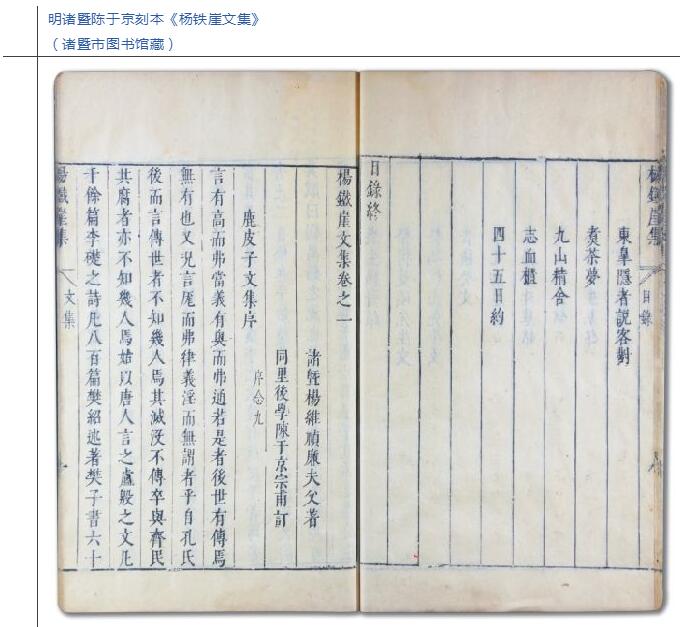 明诸暨陈于京刻本《杨铁崖文集》
（诸暨市图书馆藏）
楊鐵崖集
目錄
東皐隱者説客對
煑茶夢
九山精舍
志血櫃
四十五日約
目錄終
楊鐵崖文集卷之一
諸暨楊維禎廉夫父著
同里後學陳于京宗甫訂
序
鹿皮子文集序
言有高而弗當義有與而弗通若是者後世有傳焉
無有也又況言厖而弗律義淫而無謂者乎自孔氏
後而言傳世者不知幾人焉其滅没不傳卒與齊民
共腐者亦不知幾人焉姑以唐人言之盧殷之文凡
千餘篇李礎之詩凡八百篇樊紹述著樊子書六十
楊鐵崖集
文集